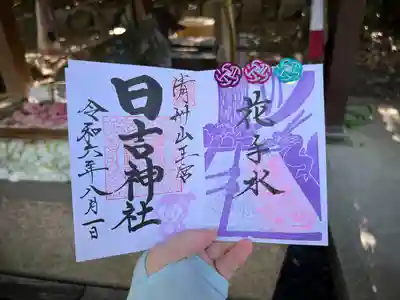 花手水
清洲山王宮
日吉神社
令和六年八月一日